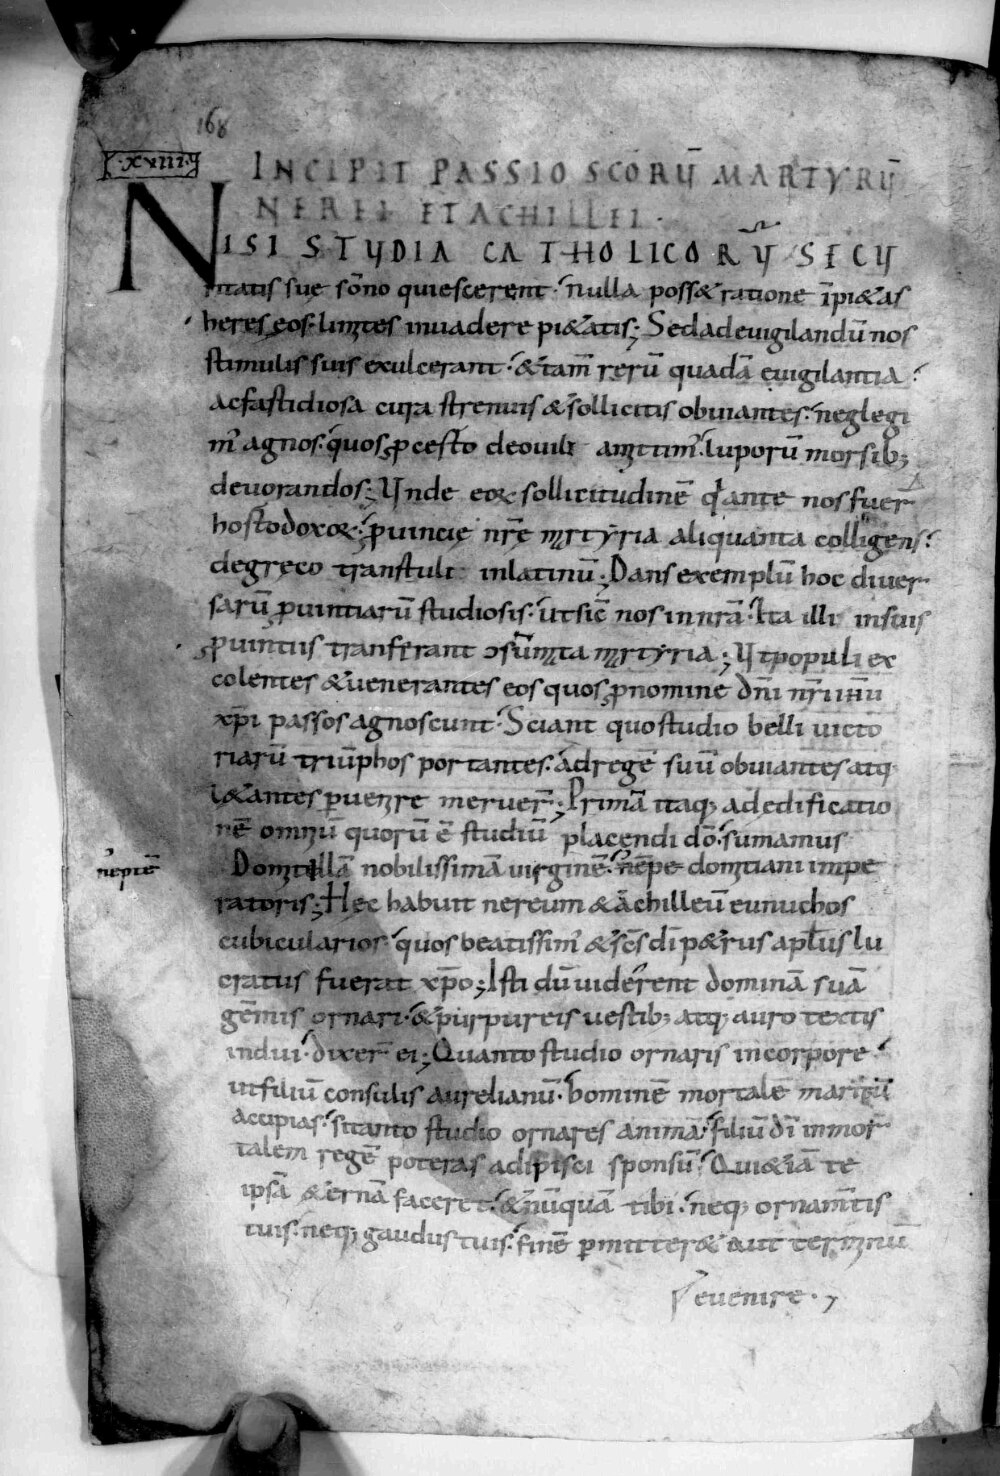 168
·XVIII·
INCIPIT PASSIO SCORŪ MARTYRŪ
NEREI ET ACHILLEI ·
NISI STUDIA CATHOLICORŪ SECU
ritatis sue sōno quiescerent · nulla poss& ratione īpi&as
heres eos · limites invadere pi&atis; Sed ad evigilandū nos
stimulis suis exulcerant · & tam̄ rerū quadā evigilantia
ac fastidiosa cura strenuis & sollicitis obviantes · neglegi
m̄ agnos · quos p cesto de ovili amittim̄ · luporū morsib;
devorandos; Unde eoꝝ sollicitudinē q ante nos fuer
hostodoxoꝝ · pvincie nrē martyria aliquanta colligens ·
de greco transtuli in latinū; Dans exemplū hoc diver
sarū pvintiarū studiosis · ut sic̄ nos in nrā · Ita illi in suis
pvintiis tranferant ɔsūmata martyria; Ut populi ex
colentes & venerantes eos quos p nomine dn̄i nr̄i ihū
xp̄i passos agnoscunt · Sciant quo studio belli victo
riarū triūphos portantes · ad regē suū obviantes atq;
l&antes pvenire meruer̄; Primā itaq; ad edificatio
nē omniū quorū ē studiū placendi dō · sumamus
Domitillā nobilissimā virginē · nēpe domitiani impe
neptē
ratoris; Hec habuit nereum & achilleū eunuchos
cubicularios · quos beatissim̄ & sc̄s di p&rus apłus lu
cratus fuerat xp̄o; Isti dū viderent dominā suā
gēmis ornari · & purpureis vestib; atq; auro textis
indui · dixer̄ ei; Quanto studio ornaris in corpore
ut filiū consulis aurelianū · hominē mortalē maritū
accipias · si tanto studio ornares animā · filiū dī inmor
talem regē poteras adipisci sponsū · Qui & iā te
ipsā &ernā facer& · & nūquā tibi · neq; ornam̄tis
tuis · neq; gaudiis tuis · finē pmitter& aut terminū
evenire ·